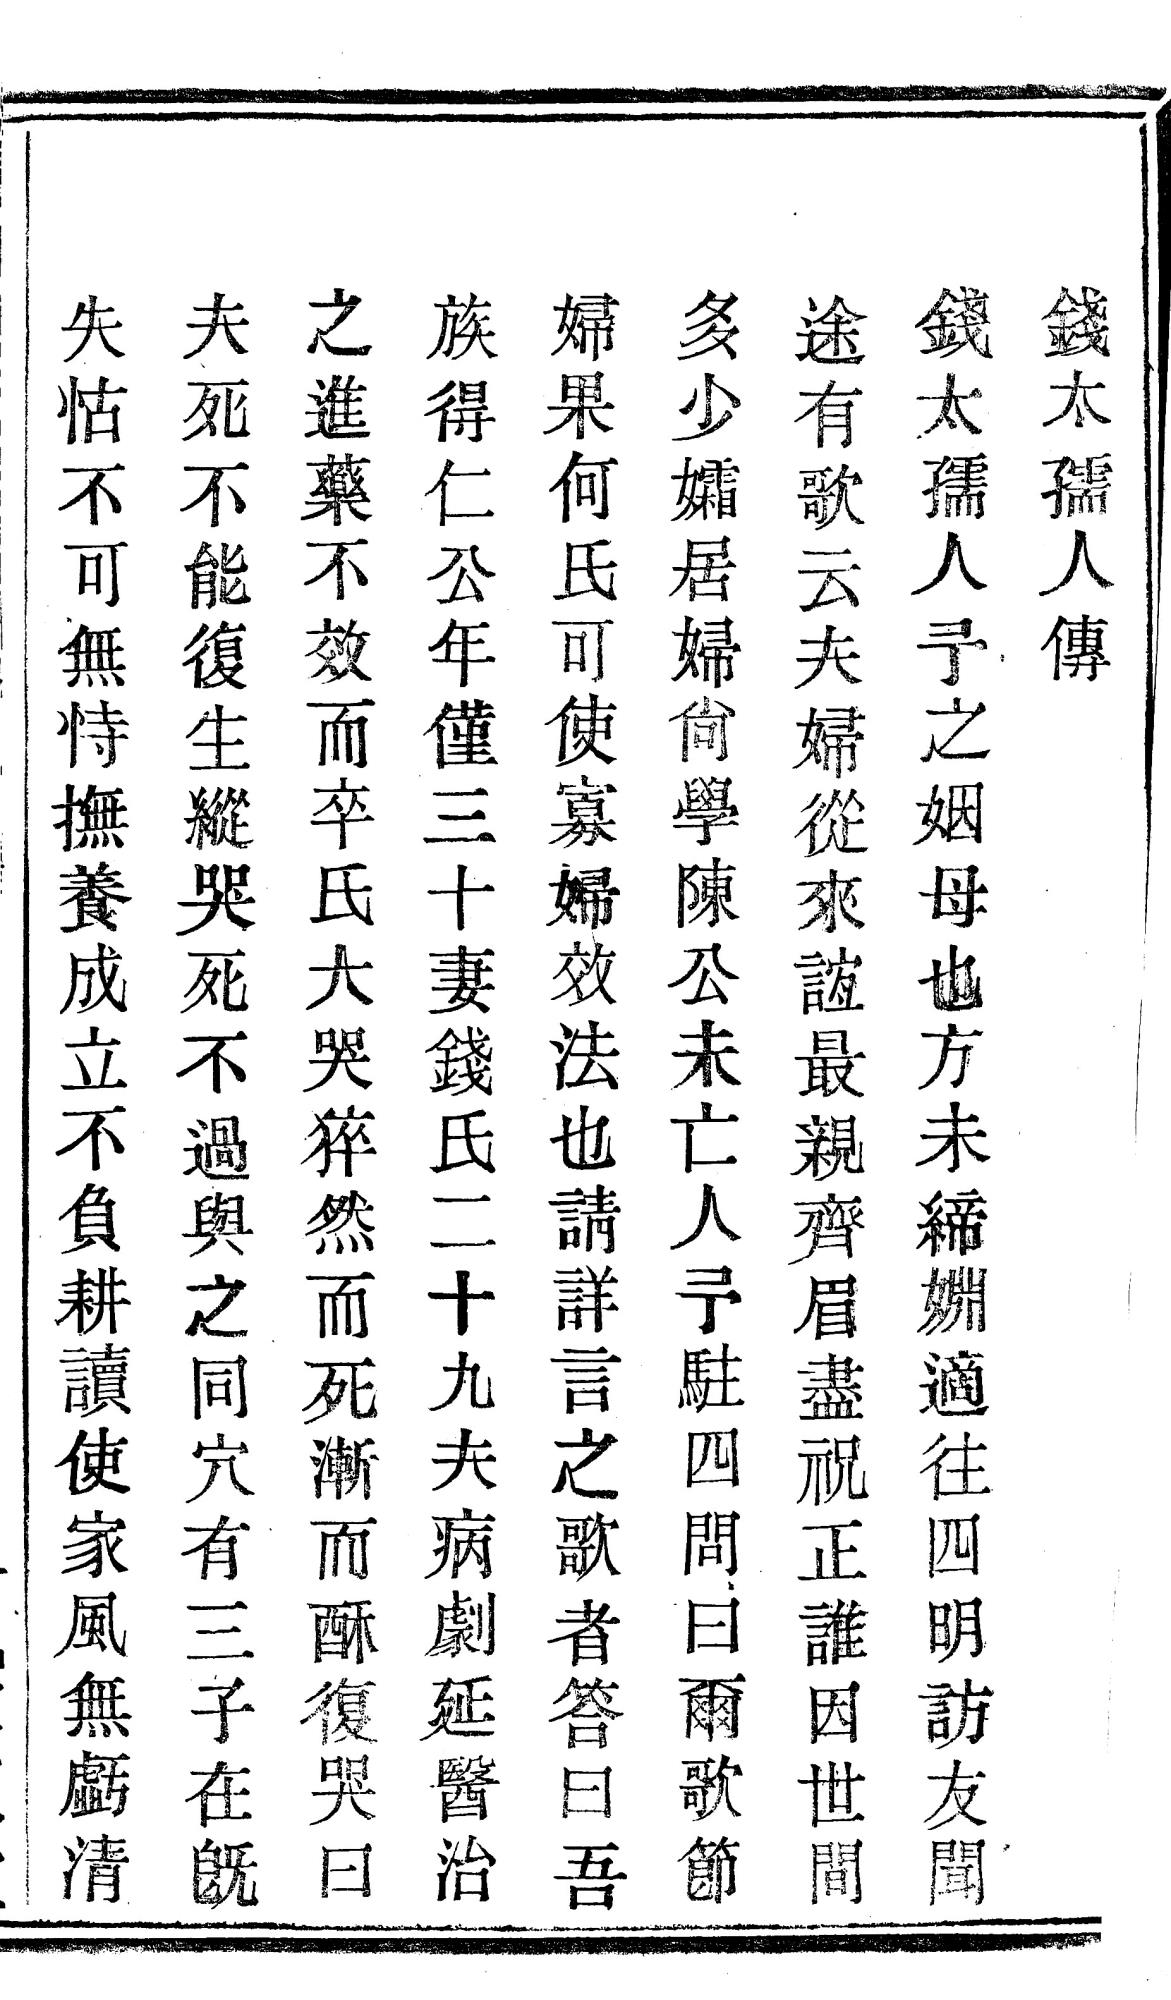 錢太孺人傳
錢太孺人予之姻母也方未締婣適往四明訪友聞
途有歌云夫婦從來誼最親齊眉盡祝正誰因世間
多少孀居婦尙學陳公未亡人予駐四問曰爾歌節
婦果何氏可使寡婦效法也請詳言之歌者答曰吾
族得仁公年僅三十妻錢氏二十九夫病劇延醫治
之進藥不效而卒氏大哭猝然而死漸而酥復哭曰
夫死不能復生縱哭死不過與之同穴有三子在旣
失怙不可無恃撫養成立不負耕讀使家風無虧清